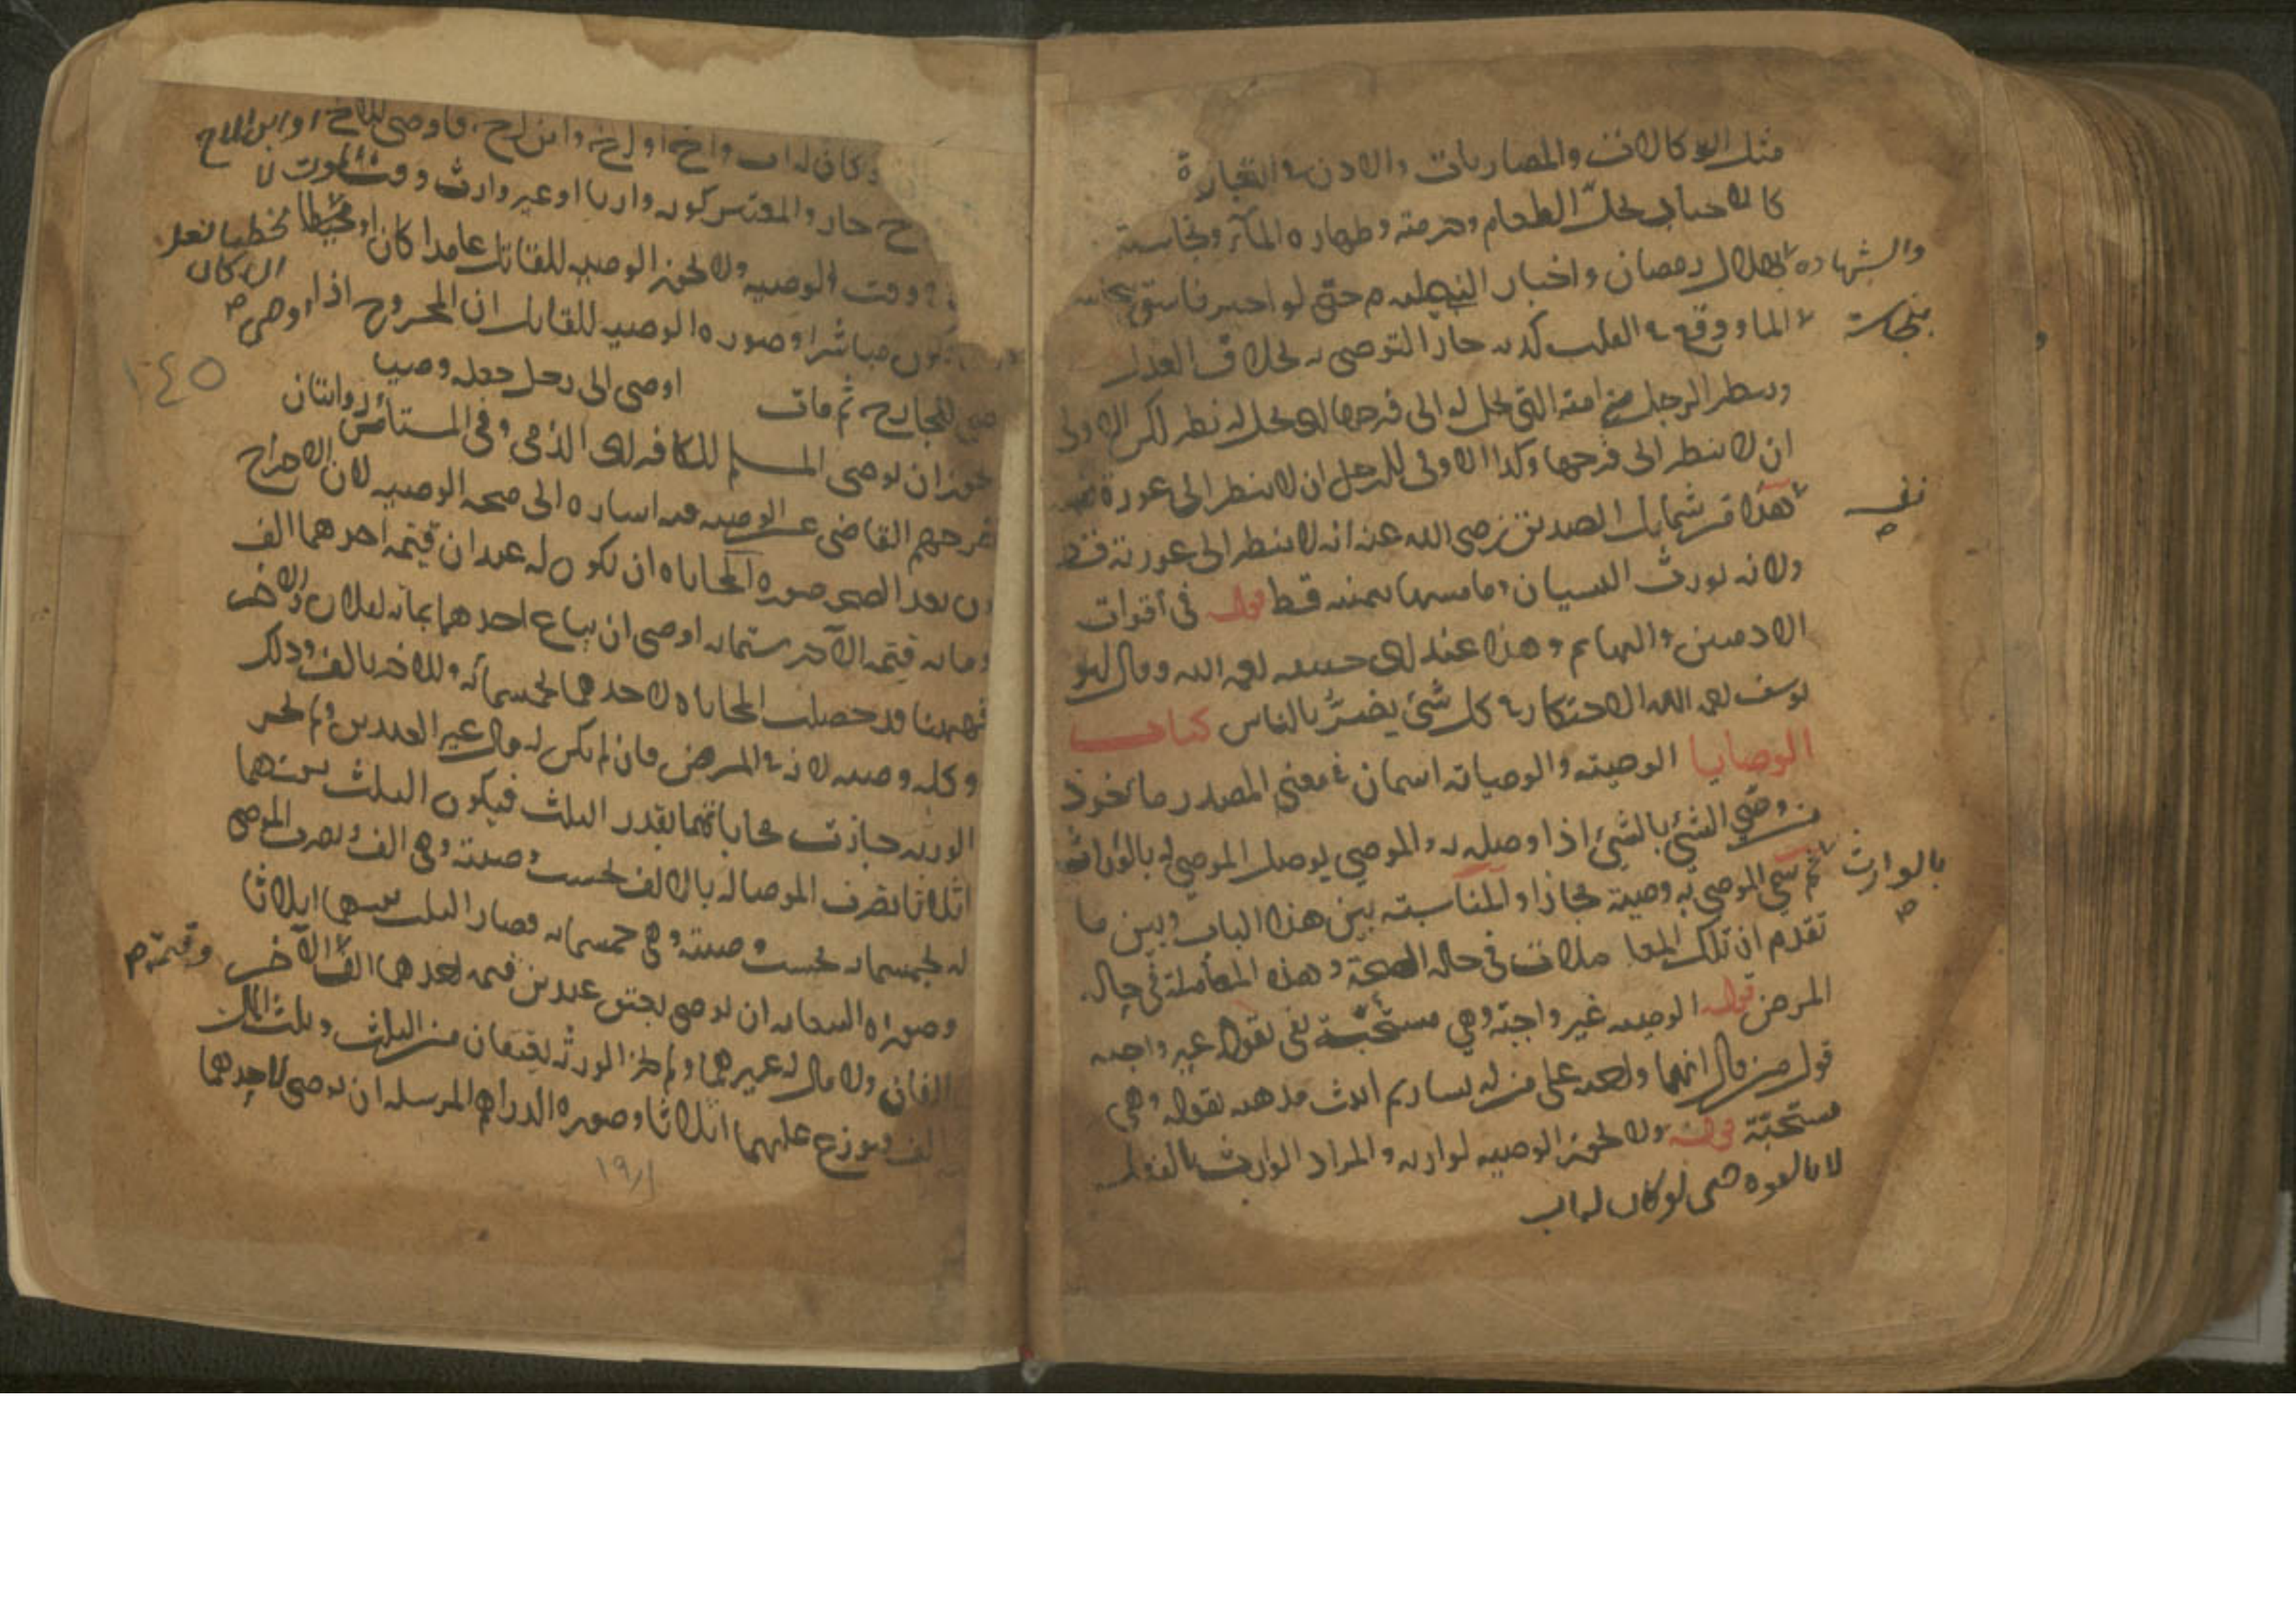 مثل الوكالات والمضاربات والاذن في التجارة
كالاخبار بحل الطعام وحرمته وطهارة الماء ونجاسته
والشهادة بهلال رمضان واخبار حتى لو اخبر فاسق بنجاسة
الماء ووقع في القلب كذبه جاز التوضي به بخلاف العدل
وينظر الرجل من امته التي تحل له الى فرجها اي يحل له نظر لكن الاولى
ان لا ينظر الى فرجها وكذا الاولى للرجل ان لا ينظر الى عورة نفسه
فهذا من شمايل الصديق رضي الله عنه انه لا ينظر الى عورته قط
ولانه يورث النسيان وما مسها بيمينه قط قوله في اقوات
الادميين والبهايم وهذا عند ابي حنيفه رحمه الله وقال ابو
يوسف رحمه الله الاحتكار في كل شيء يضر بالناس كتاب
الوصايا الوصية والوصاية اسمان في معنى المصدر ماخوذ
من وصى الشيء بالشيء اذا وصله به والموصي يوصل الموصى له بالوراث
بالوارث
ثم سمي الموصى به وصية مجازا والمناسبة بين هذا الباب وبين ما
تقدم ان تلك المعاملات في حالة الصحة وهذه المعاملة في حال
المرض قوله الوصيه غير واجبة وهي مستحبة نفى بقوله غير واجبه
قول من قال انها واجبة على من له يسار ثم اثبت مذهبه بقوله وهي
مستحبة قوله ولا تجوز الوصيه لوارثه والمراد الوارث بالفعل
لا بالقوه حتى لو كان له اب
وكان له اب واخ او اخ وابن اخ فاوصى للاخ او ابن الاخ
جاز والمعتبر كونه وارثا او غير وارث وقت الموت لا
وقت الوصيه ولا تجوز الوصيه للقاتل عامدا كان او مخطيا بعد
ان كان
يكون مباشرا وصورة الوصيه للقاتل ان المجروح اذا اوصى
١٤٥
للجارح ثم مات اوصى الى رجل جعله وصيا
يجوز ان يوصي المسلم للكافر اي الذمي وفي المستأمن روايتان
اخرجهم القاضي عن الوصيه فيه اشاره الى صحة الوصيه لان الاخراج
يكون بعد الصحه صورة المحاباه ان يكون له عبدان قيمة احدهما الف
ومايه وقيمة الآخر ستمايه اوصى ان يباع احدهما بمايه لفلان والاخر
فههنا قد حصلت المحاباه لاحدهما بخمسمائة وللاخر بالف وذلك
وكله وصيه لانه في المرض فان لم يكن له مال غير العبدين ولم تجز
الورثه جازت محاباتهما بقدر الثلث فيكون الثلث بينهما
اثلاثا يضرب الموصا له بالالف بحسب وصيته وهي الف ويضرب الموصى
له بخمسمايه بحسب وصيته وهي خمسمايه فصار الثلث بينهما اثلاثا
وصورة السعايه ان يوصي بعتق عبدين قيمة احدهما الف وقيمة الآخر
الفان ولا مال له غيرهما ولم تجز الورثه يعتقان من الثلث وثلث المال
الف يوزع عليهما اثلاثا وصورة الدراهم المرسله ان يوصي لاحدهما